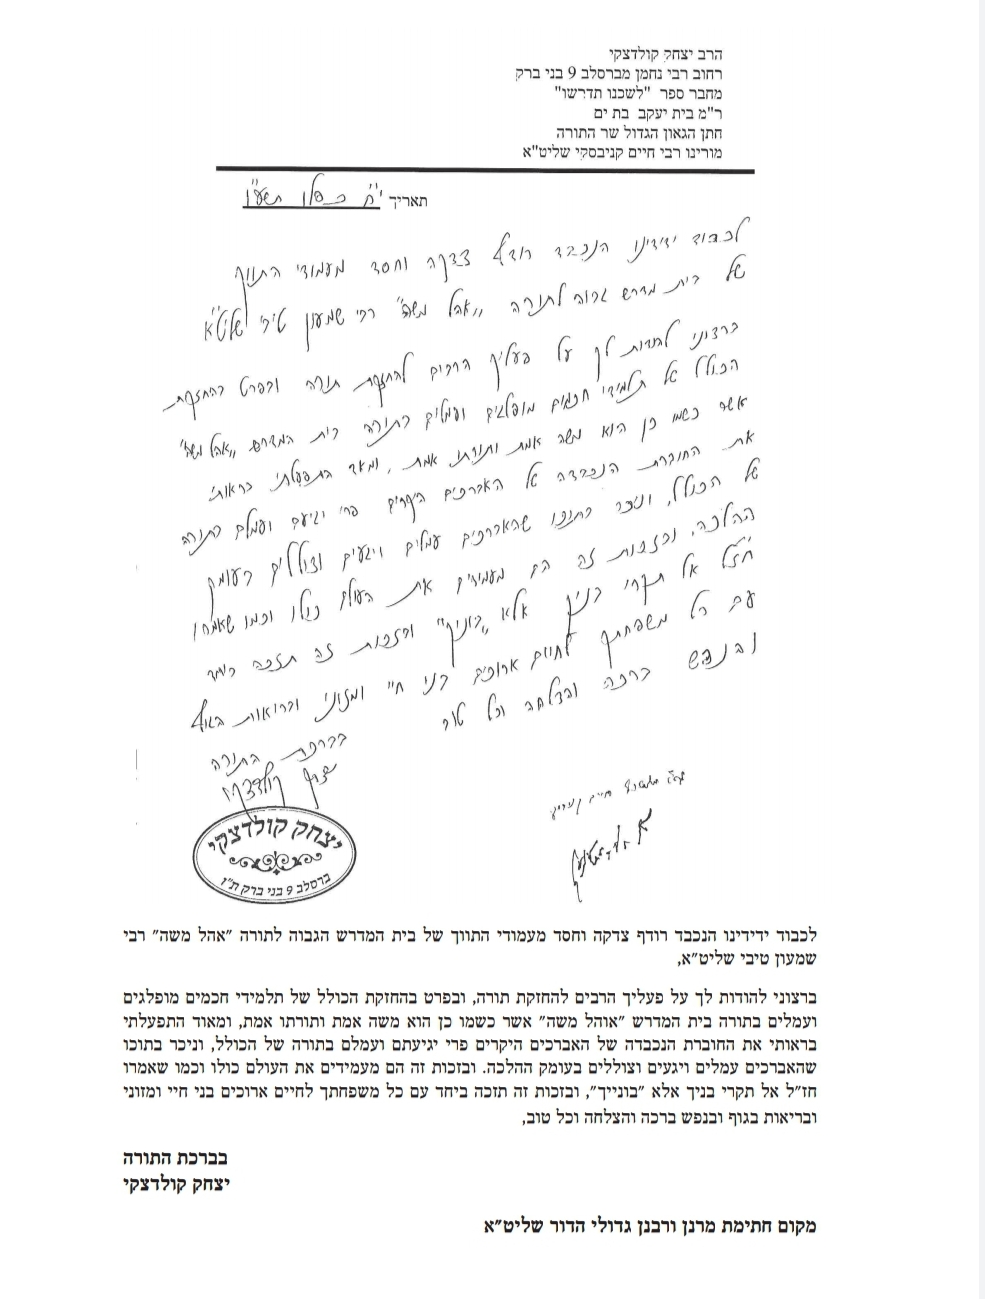 הרב יצחק קולדצקי
רחוב רבי נחמן מברסלב 9 בני ברק
מחבר ספר "לשכנו תדרשו"
ר"מ בית יעקב בת ים
חתן הגאון הגדול שר התורה
מורינו רבי חיים קניבסקי שליט"א
תאריך י"ח כסלו תשע"ו
לכבוד ידידינו הנכבד רודף צדקה וחסד מעמודי התווך
של בית מדרש גבוה לתורה "אהל משה" רבי שמעון טיבי שליט"א
ברצוני להודות לך על פעליך הרבים להחזקת תורה ובפרט בהחזקת
הכולל של תלמידי חכמים מופלגים ועמלים בתורה בית המדרש "אהל משה"
אשר כשמו כן הוא משה אמת ותורתו אמת, ומאד התפעלתי בראותי
את החוברת הנכבדה של האברכים היקרים פרי יגיעם ועמלם בתורה
של הכולל, וניכר בתוכו שהאברכים עמלים ויגעים וצוללים בעומק
ההלכה. ובזכות זה הם מעמידים את העולם כולו וכמו שאמרו
חז"ל אל תקרי בניך אלא "בוניך" ובזכות זה תזכה ביחד
עם כל משפחתך לחיים ארוכים בני חיי ומזוני ובריאות בגוף
ובנפש ברכה והצלחה וכל טוב
בברכת התורה
יצחק קולדצקי
יצחק קולדצקי
ברסלב 9 בני ברק ת"ו
לכבוד ידידינו הנכבד רודף צדקה וחסד מעמודי התווך של בית המדרש הגבוה לתורה ״אהל משה״ רבי
שמעון טיבי שליט״א,
ברצוני להודות לך על פעליך הרבים להחזקת תורה, ובפרט בהחזקת הכולל של תלמידי חכמים מופלגים
ועמלים בתורה בית המדרש ״אוהל משה״ אשר כשמו כן הוא משה אמת ותורתו אמת, ומאוד התפעלתי
בראותי את החוברת הנכבדה של האברכים היקרים פרי יגיעתם ועמלם בתורה של הכולל, וניכר בתוכו
שהאברכים עמלים ויגעים וצוללים בעומק ההלכה. ובזכות זה הם מעמידים את העולם כולו וכמו שאמרו
חז״ל אל תקרי בניך אלא ״בונייך״, ובזכות זה תזכה ביחד עם כל משפחתך לחיים ארוכים בני חיי ומזוני
ובריאות בגוף ובנפש ברכה והצלחה וכל טוב,
בברכת התורה
יצחק קולדצקי
מקום חתימת מרנן ורבנן גדולי הדור שליט״א